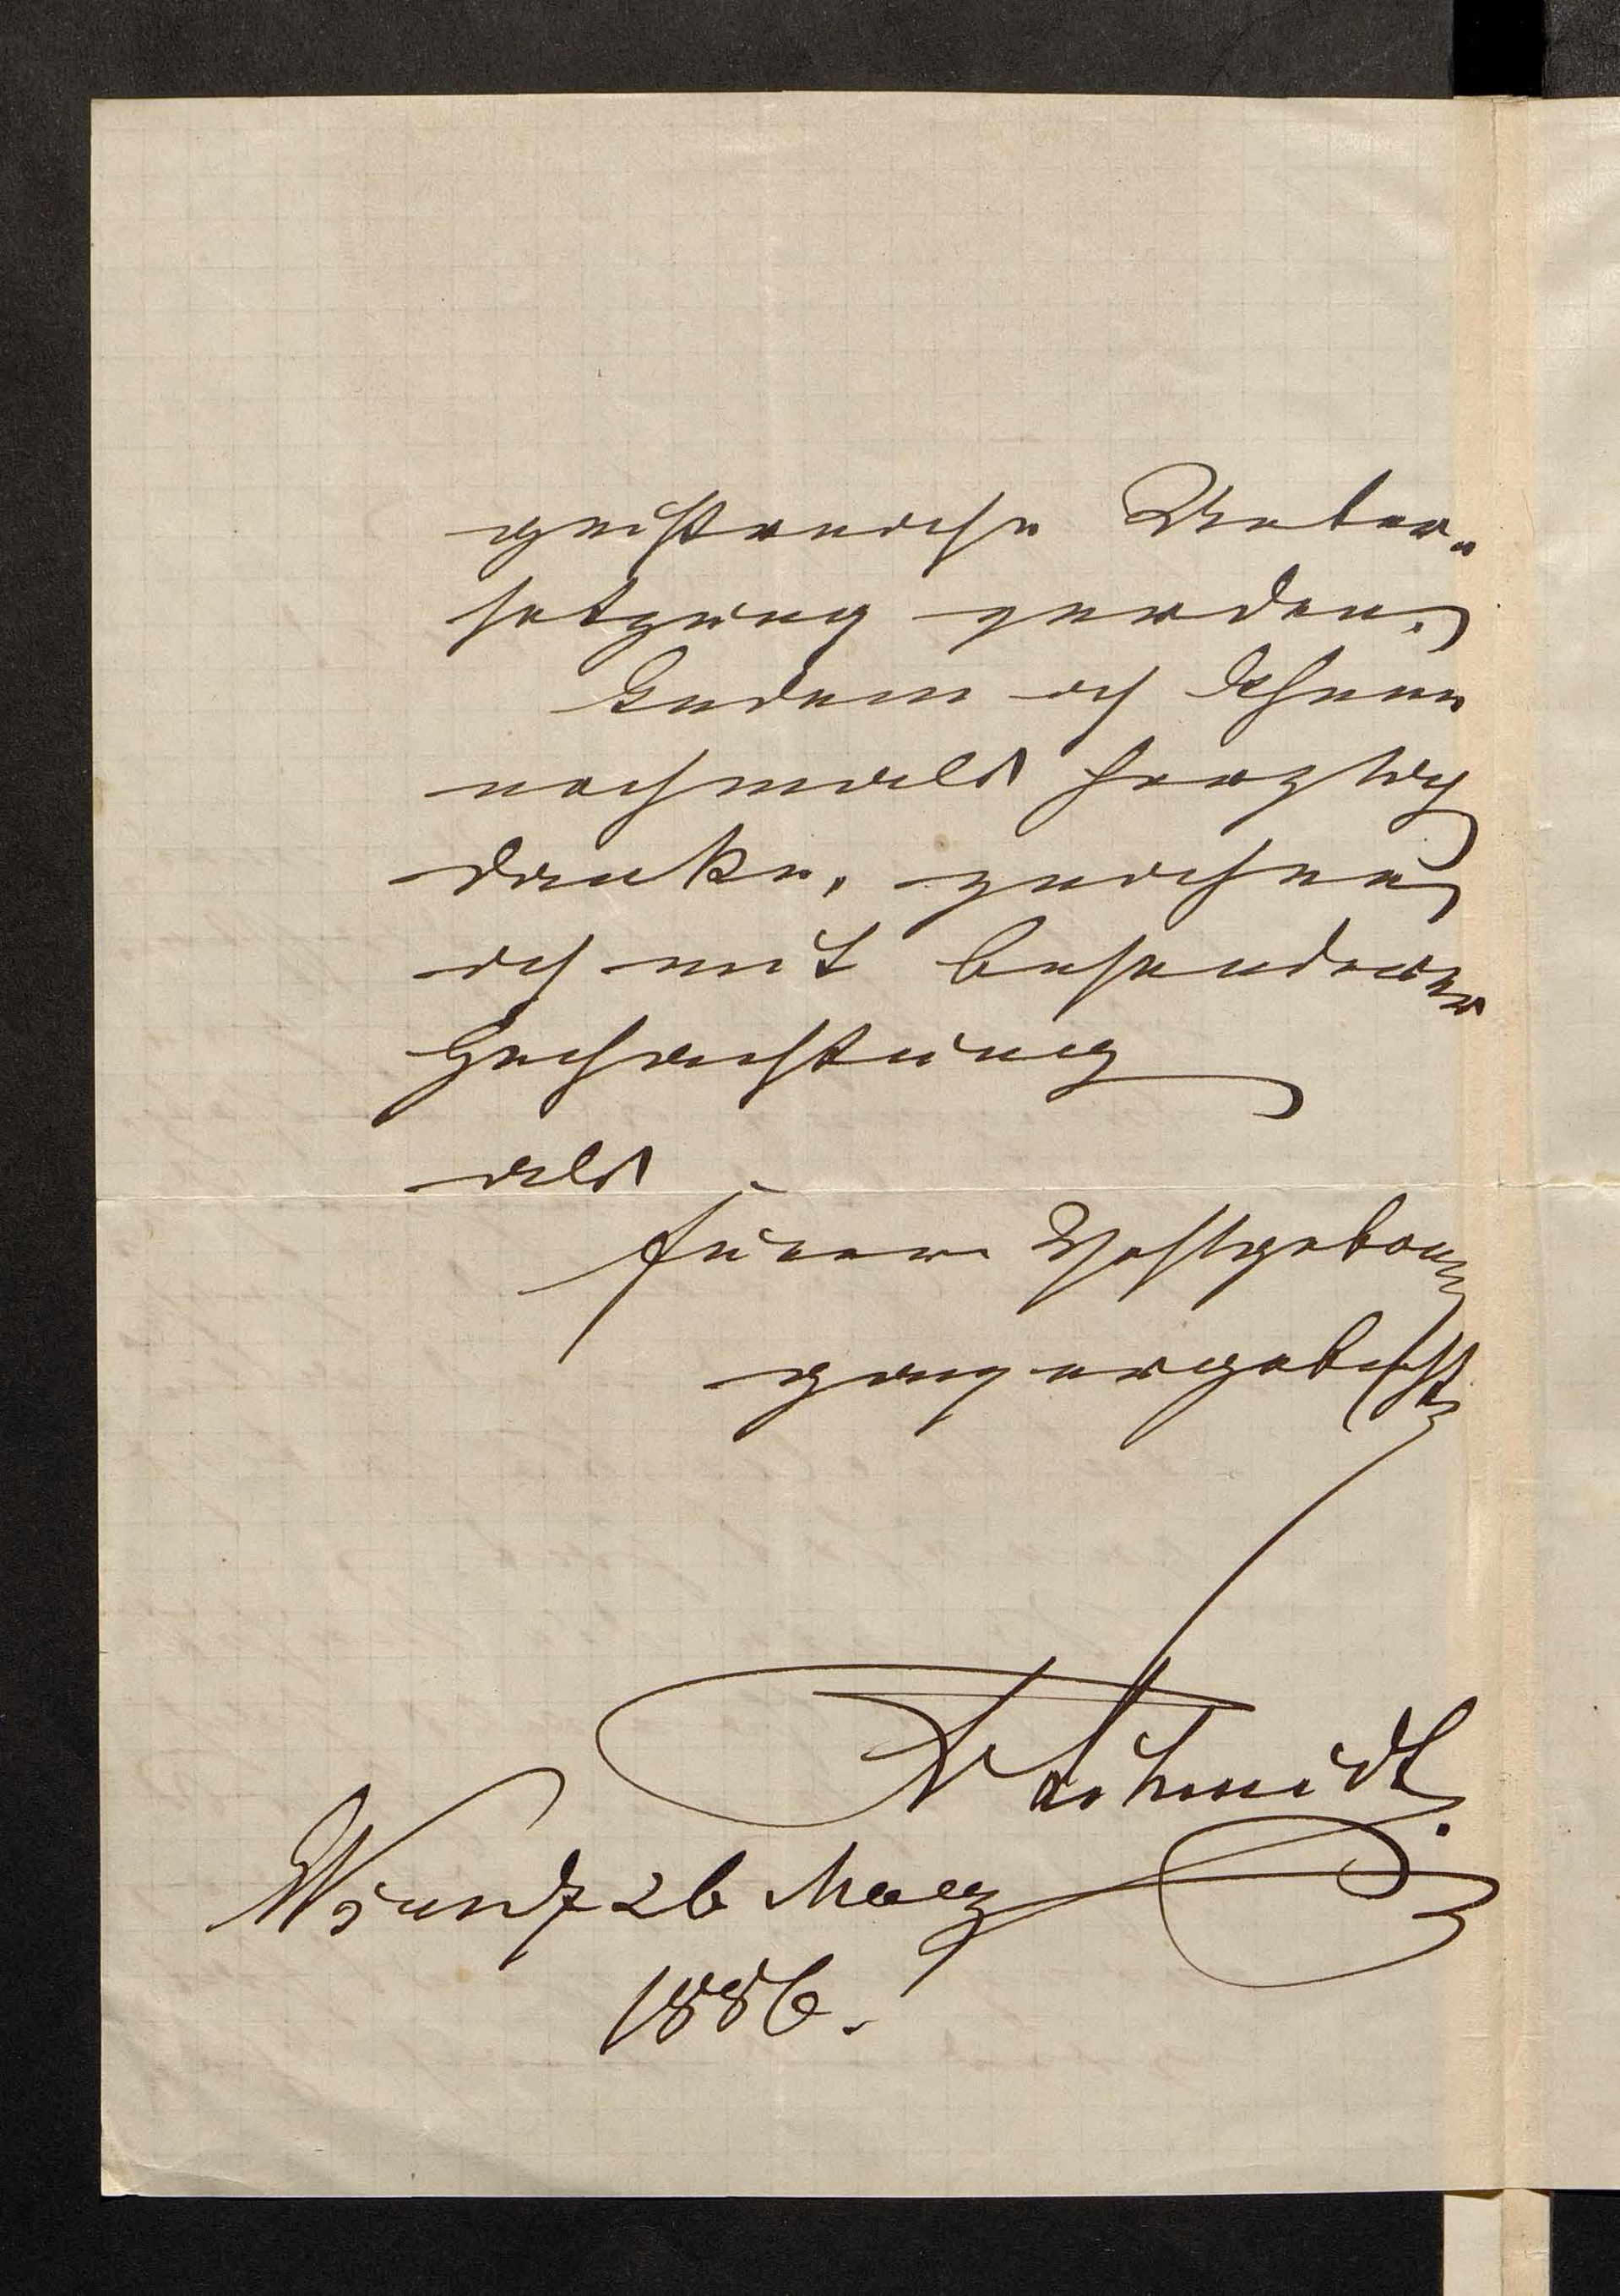 geistreichen Ueber„
setzung werden.
Indem ich Ihnen
nochmals herzlich
danke, zeichne
ich mit besonderer
Hochachtung
als
Euerer Wohlgeboren
ganz ergebenster
Schmidt.
26 Maerz
1886.